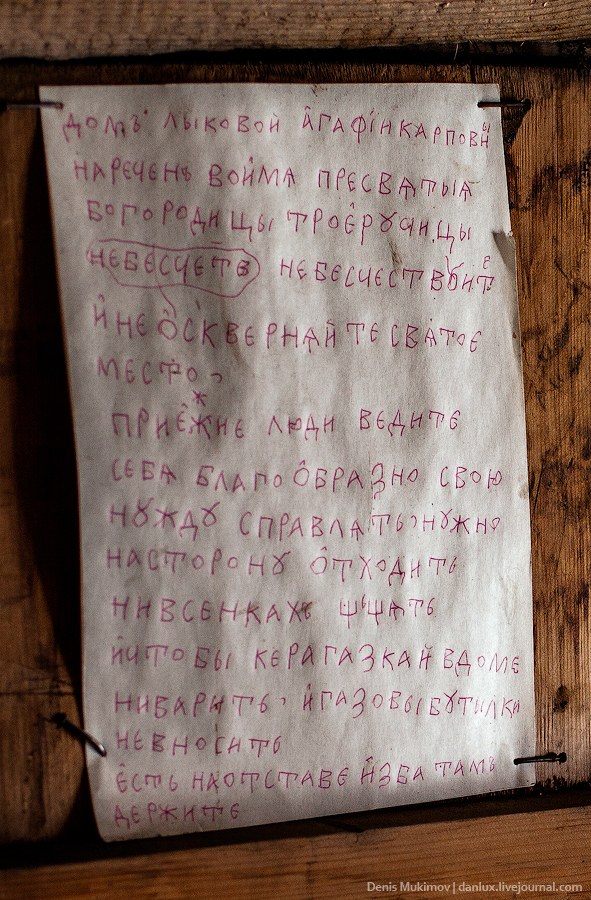 ДОМЪ ЛЫКОВОЙ АГАФІИ КАРПОВНЫ
НАРЕЧЕНЪ ВОИМА ПРЕСВАТЫІА
БОГОРОДИЦЫ ТРОЕРУЧИЦЫ
НЕБЕСЧЕТЕ НЕБЕСЧЕСТВѸИТЕ
И НЕ ОСКВЕРНАЙТЕ СВАТОЕ
МЕСТО,
ПРИЕЖНЕ ЛЮДИ ВЕДИТЕ
СЕБА БЛАГООБРАЗНО СВОЮ
НУЖДУ СПРАВЛАТЬ, НУЖНО
НАСТОРОНУ ОТХОДИТЬ
НИВСЕНКАХЪ
ИЧТОБЫ КЕРАГАЗКАЙ ВДОМЕ
НИВАРИТЬ, ИГАЗОВЫ БУТИЛКИ
НЕВНОСИТЬ
ЕСТЬ НАОТСТАВЕ ИЗБА ТАМЪ
ДЕРЖИТЕ
Denis Mukimov | danlux.livejournal.com